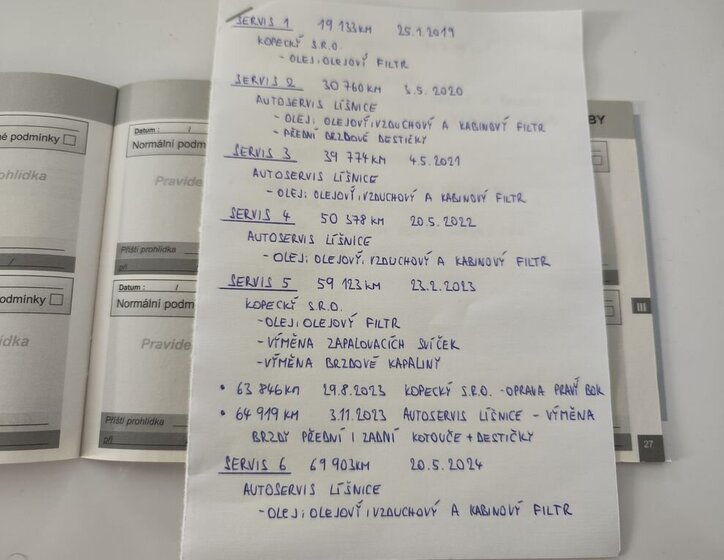 SERVIS 1 19 133KM 25.1.2019
KOPECKÝ S.R.O.
- OLEJ, OLEJOVÝ FILTR
SERVIS 2 30 760KM 3.5.2020
AUTOSERVIS LÍŠNICE
- OLEJ, OLEJOVÝ, VZDUCHOVÝ A KABINOVÝ FILTR
- PŘEDNÍ BRZDOVÉ DESTIČKY
SERVIS 3 39 774KM 4.5.2021
AUTOSERVIS LÍŠNICE
- OLEJ, OLEJOVÝ, VZDUCHOVÝ A KABINOVÝ FILTR
SERVIS 4 50 378 KM 20.5.2022
AUTOSERVIS LÍŠNICE
- OLEJ, OLEJOVÝ, VZDUCHOVÝ A KABINOVÝ FILTR
SERVIS 5 59 123KM 23.2.2023
KOPECKÝ S.R.O.
- OLEJ, OLEJOVÝ FILTR
- VÝMĚNA ZAPALOVACÍCH SVÍČEK
- VÝMĚNA BRZDOVÉ KAPALINY
• 63 846KM 29.8.2023 KOPECKÝ S.R.O. - OPRAVA PRAVÝ BOK
• 64 919 KM 3.11.2023 AUTOSERVIS LÍŠNICE - VÝMĚNA
BRZDY PŘEDNÍ I ZADNÍ KOTOUČE + DESTIČKY
SERVIS 6 69 903KM 20.5.2024
AUTOSERVIS LÍŠNICE
- OLEJ, OLEJOVÝ, VZDUCHOVÝ A KABINOVÝ FILTR
né podmínky
ohlídka
/
podmínky
ídka
Datum : /
Normální podm
Pravide
Příští prohlídka
při
Datum : /
Normální podm
Pravide
Příští prohlídka
při
BY
III
27